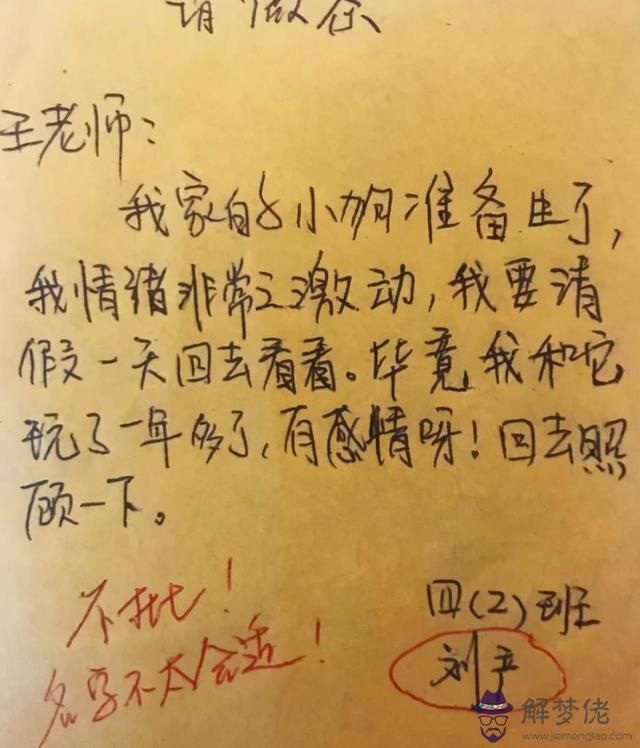 请假条
王老师:
我家的小狗准备生了,
我情绪非常之激动,我要请
假一天回去看看。毕竟,我和它
玩了一年多了,有感情呀!回去照
顾一下。
四(2)班
刘产
不批!
名字不太合适!
解梦佬
www.jiemenglao.com